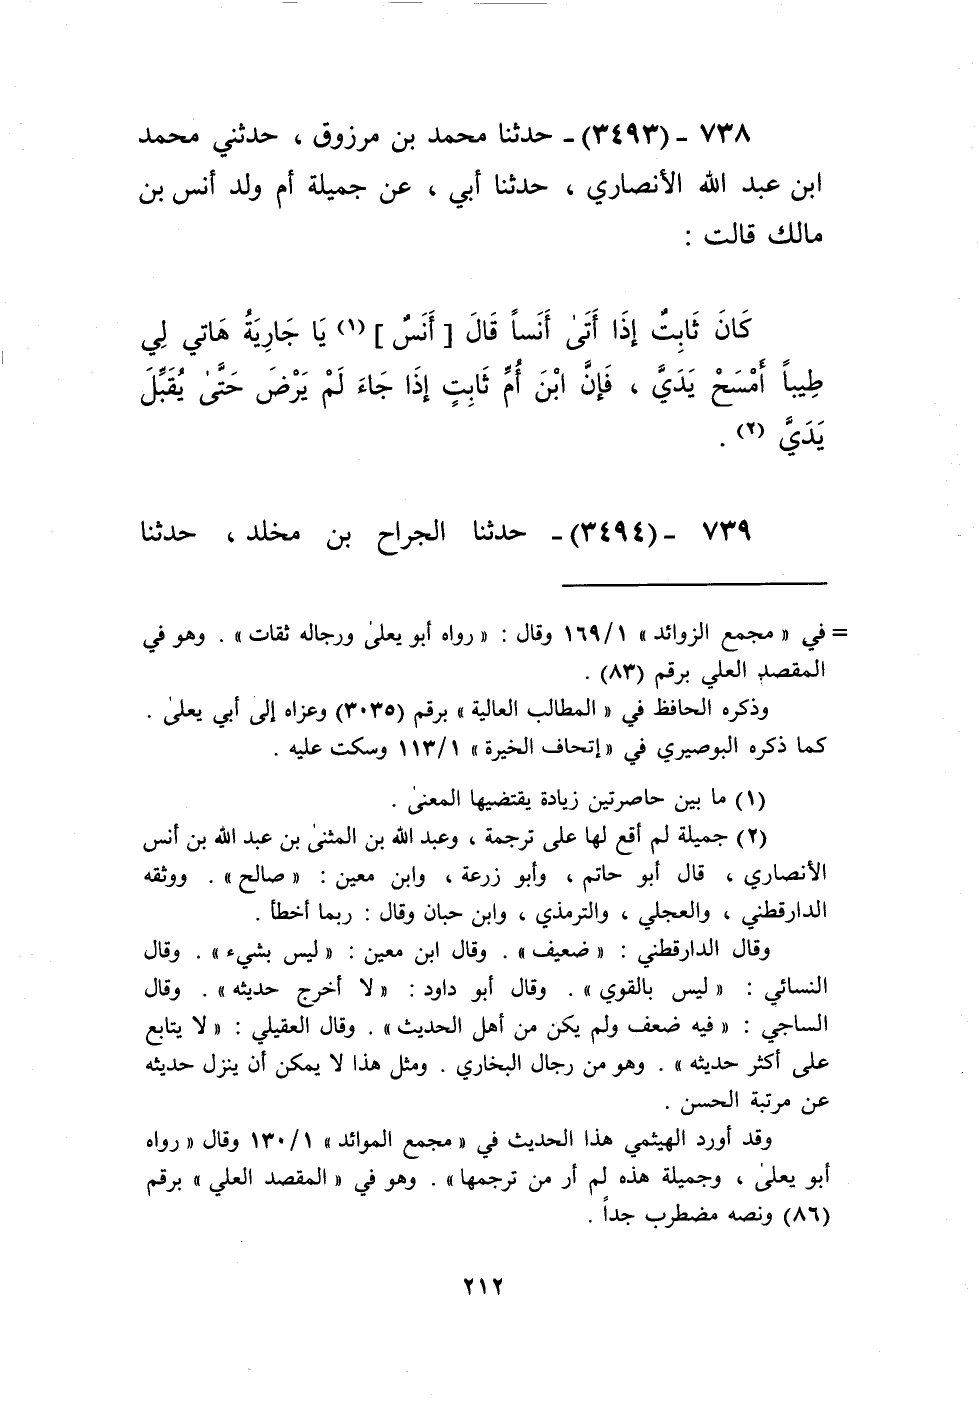 ٧٣٨ - (٣٤٩٣)- حدثنا محمد بن مرزوق ، حدثني محمد
ابن عبد الله الأنصاري ، حدثنا أبي ، عن جميلة أم ولد أنس بن
مالك قالت :
كَانَ ثَابِتٌ إِذَا أَتَىٰ أَنَساً قَالَ [ أَنَسٌ ] (١) يَا جَارِيَةُ هَاتي لِي
طِيباً أَمْسَحْ يَدَيَّ ، فَإِنَّ ابْنَ أُمِّ ثَابِتٍ إِذَا جَاءَ لَمْ يَرْضَ حَتَّىٰ يُقَبِّلَ
يَدَيَّ (٢) .
٧٣٩ - (٣٤٩٤)- حدثنا الجراح بن مخلد ، حدثنا
= في « مجمع الزوائد » ١٦٩/١ وقال : « رواه أبو يعلىٰ ورجاله ثقات » . وهو في
المقصد العلي برقم (٨٣) .
وذكره الحافظ في « المطالب العالية » برقم (٣٠٣٥) وعزاه إلى أبي يعلىٰ .
كما ذكره البوصيري في « إتحاف الخيرة » ١١٣/١ وسكت عليه .
(١) ما بين حاصرتين زيادة يقتضيها المعنىٰ .
(٢) جميلة لم أقع لها على ترجمة ، وعبد الله بن المثنىٰ بن عبد الله بن أنس
الأنصاري ، قال أبو حاتم ، وأبو زرعة ، وابن معين : « صالح » . ووثقه
الدارقطني ، والعجلي ، والترمذي ، وابن حبان وقال : ربما أخطأ .
وقال الدارقطني : « ضعيف » . وقال ابن معين : « ليس بشيء » . وقال
النسائي : « ليس بالقوي » . وقال أبو داود : « لا أخرج حديثه » . وقال
الساجي : « فيه ضعف ولم يكن من أهل الحديث » . وقال العقيلي : « لا يتابع
على أكثر حديثه » . وهو من رجال البخاري . ومثل هذا لا يمكن أن ينزل حديثه
عن مرتبة الحسن .
وقد أورد الهيثمي هذا الحديث في « مجمع الموائد » ١٣٠/١ وقال « رواه
أبو يعلىٰ ، وجميلة هذه لم أر من ترجمها » . وهو في « المقصد العلي » برقم
(٨٦) ونصه مضطرب جداً .
٢١٢